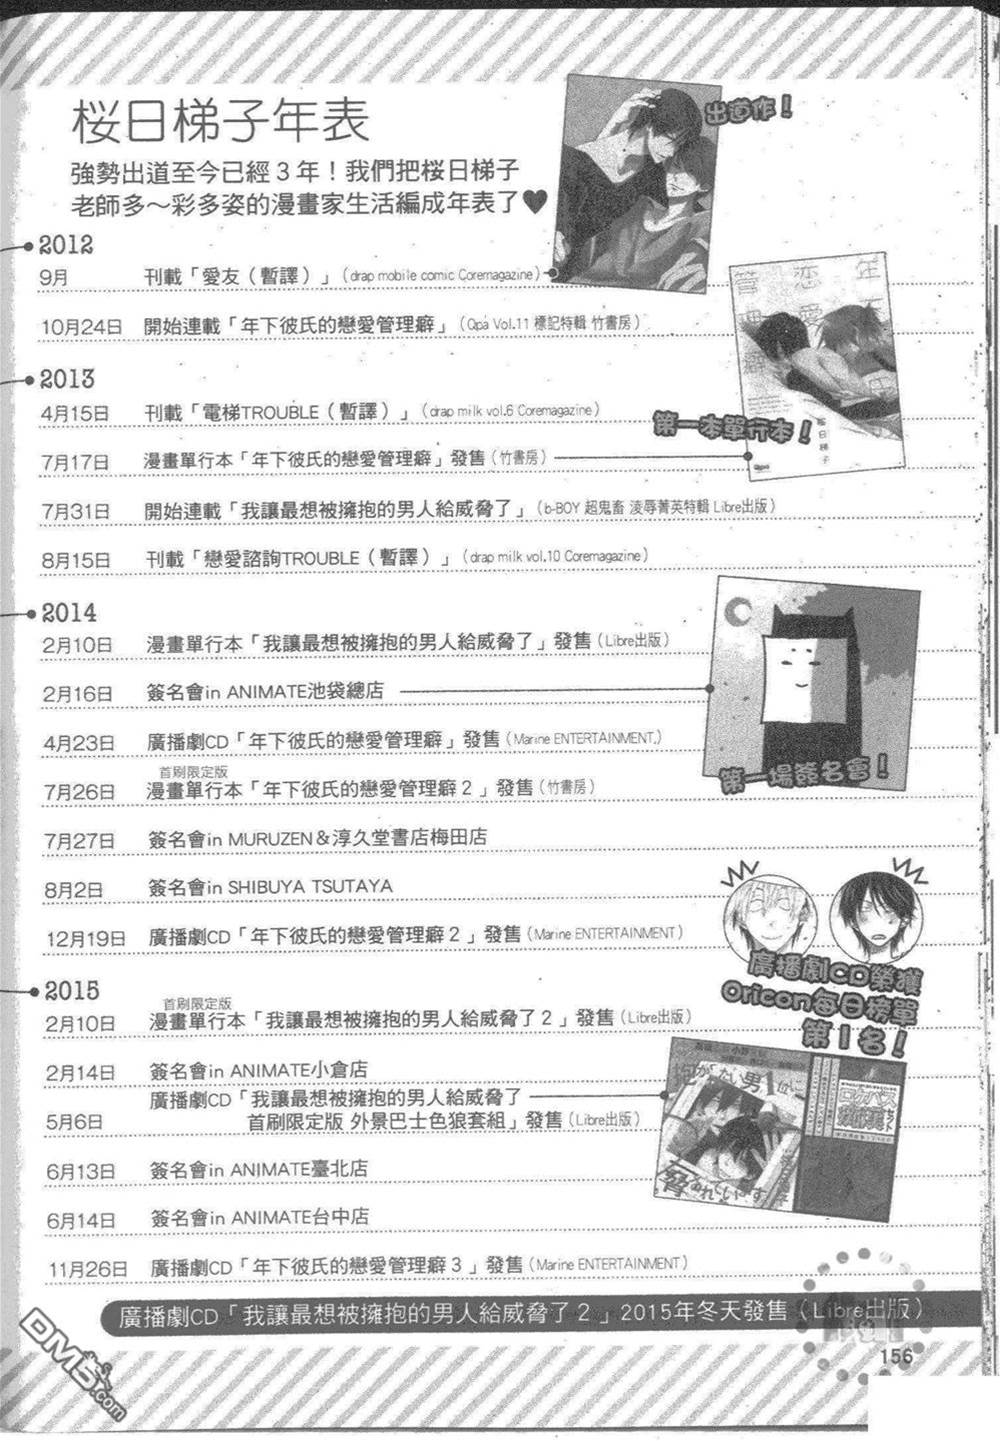 桜日梯子年表
強勢出道至今已經3年！我們把桜日梯子
老師多～彩多姿的漫畫家生活編成年表了♥
出道作！
2012
9月 刊載「愛友（暫譯）」（drap mobile comic Coremagazine）
10月24日 開始連載「年下彼氏的戀愛管理癖」（Qpa Vol.11 標記特輯 竹書房）
2013
4月15日 刊載「電梯TROUBLE（暫譯）」（drap milk vol.6 Coremagazine）
第一本單行本！
7月17日 漫畫單行本「年下彼氏的戀愛管理癖」發售（竹書房）
7月31日 開始連載「我讓最想被擁抱的男人給威脅了」（b-BOY 超鬼畜 淩辱菁英特輯 Libre出版）
8月15日 刊載「戀愛諮詢TROUBLE（暫譯）」（drap milk vol.10 Coremagazine）
2014
2月10日 漫畫單行本「我讓最想被擁抱的男人給威脅了」發售（Libre出版）
2月16日 簽名會in ANIMATE池袋總店
第一場簽名會！
4月23日 廣播劇CD「年下彼氏的戀愛管理癖」發售（Marine ENTERTAINMENT.）
首刷限定版
7月26日 漫畫單行本「年下彼氏的戀愛管理癖2」發售（竹書房）
7月27日 簽名會in MURUZEN＆淳久堂書店梅田店
8月2日 簽名會in SHIBUYA TSUTAYA
12月19日 廣播劇CD「年下彼氏的戀愛管理癖2」發售（Marine ENTERTAINMENT）
廣播劇CD榮獲
Oricon每日榜單
第1名！
2015
首刷限定版
2月10日 漫畫單行本「我讓最想被擁抱的男人給威脅了2」發售（Libre出版）
2月14日 簽名會in ANIMATE小倉店
廣播劇CD「我讓最想被擁抱的男人給威脅了
5月6日 首刷限定版 外景巴士色狼套組」發售（Libre出版）
6月13日 簽名會in ANIMATE臺北店
6月14日 簽名會in ANIMATE台中店
11月26日 廣播劇CD「年下彼氏的戀愛管理癖3」發售（Marine ENTERTAINMENT）
廣播劇CD「我讓最想被擁抱的男人給威脅了2」2015年冬天發售（Libre出版）
156
DM5.com